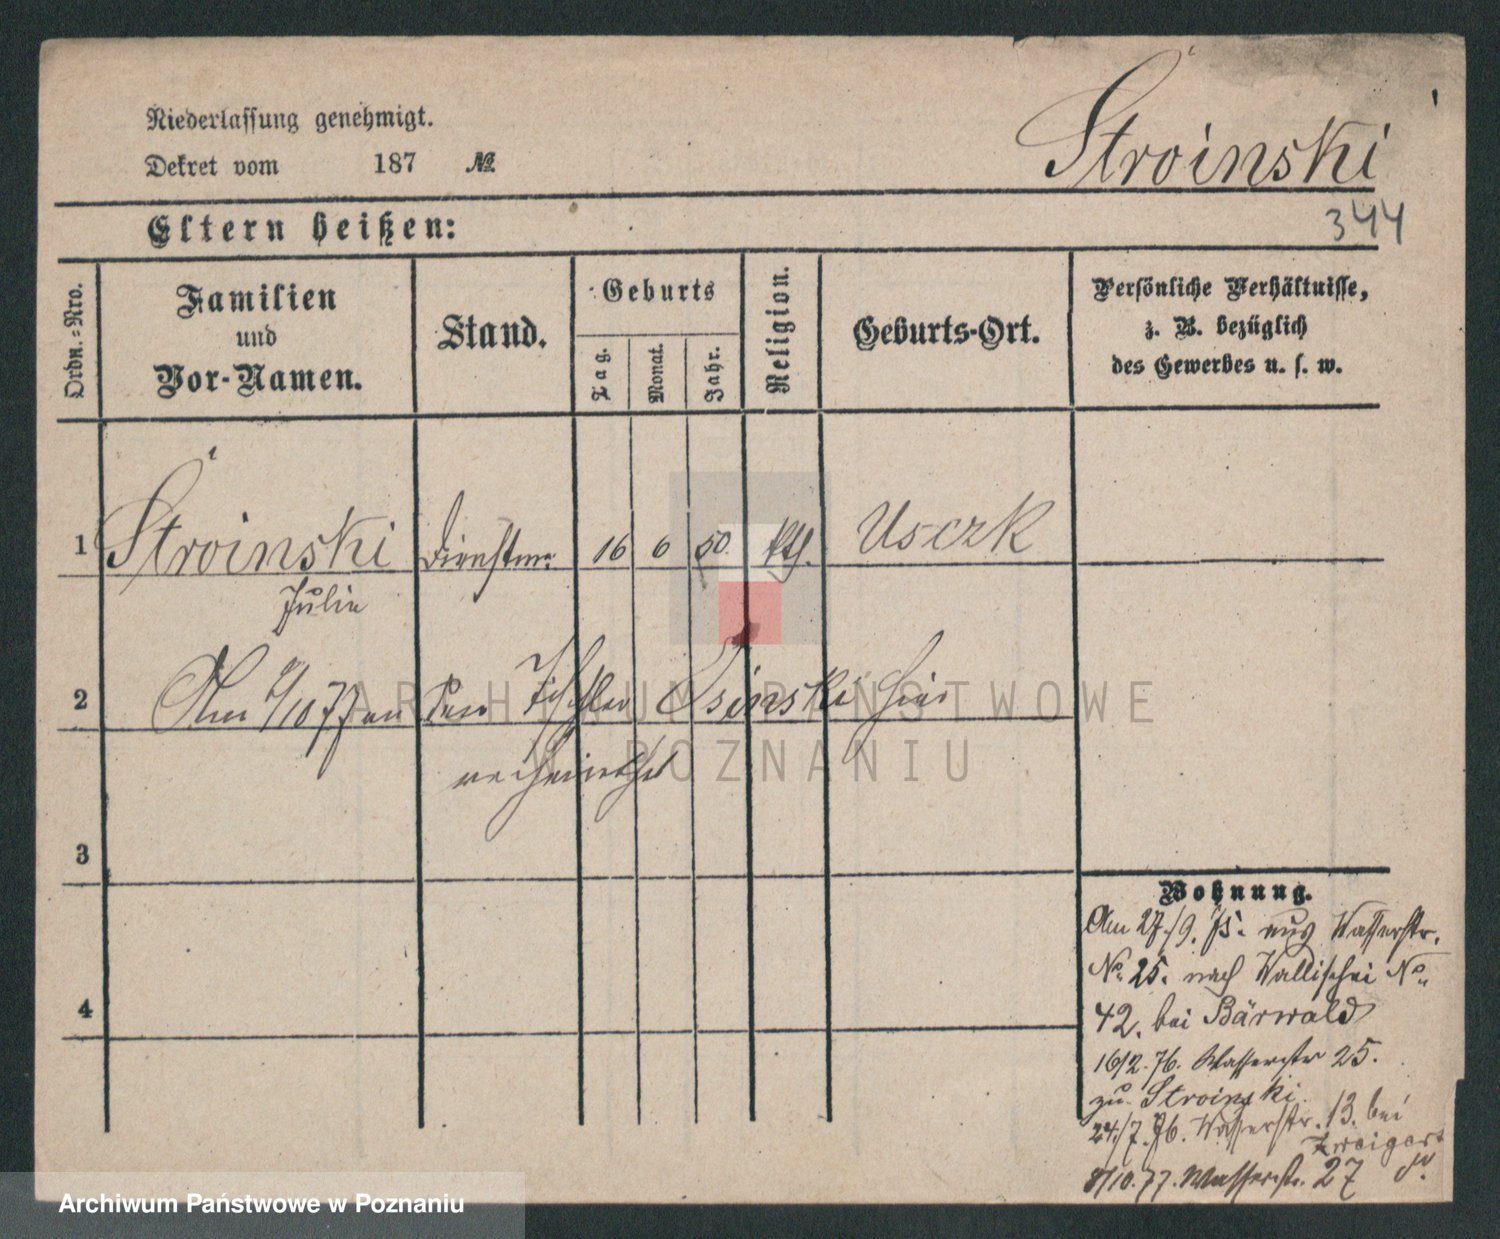 Stroinski
Niederlassung genehmigt.
Dekret vom 187 №
344
Eltern heißen:
Ordn.-Nro.
Familien
und
Vor-Namen.
Stand.
Geburts
Tag.
Monat.
Jahr.
Religion.
Geburts-Ort.
Persönliche Verhältnisse,
z. B. bezüglich
des Gewerbes u. s. w.
1 Stroinski 16 6 50. kth. Usczk
Julie
2 Am /10 77 an den Tischler Osinski hier
verheirathet
3
4
Wohnung.
Am 27./9. 75. aus Wasserstr.
No. 25. nach Wallischei No.
42. bei Bärwald
16/2. 76. Wasserstr 25.
zu Stroinski.
24./7. 76. Wasserstr. 13. bei
Zweigert
8/10. 77. Wasserstr. 27
ARCHIWUM PAŃSTWOWE
W POZNANIU
Archiwum Państwowe w Poznaniu